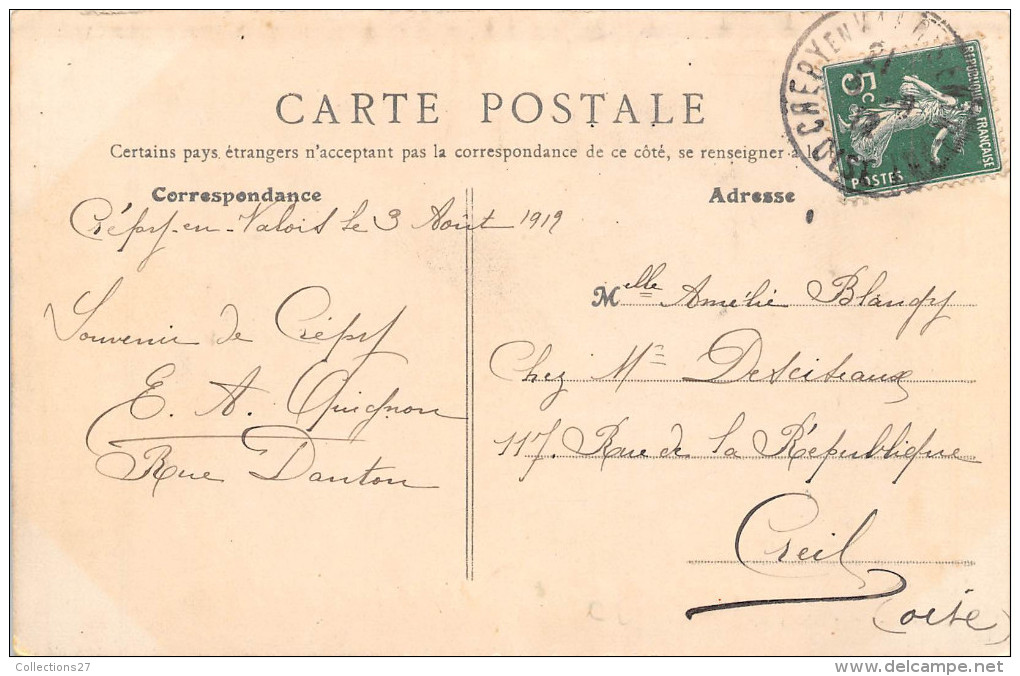 CARTE POSTALE
Certains pays étrangers n'acceptent pas la correspondance de ce côté, se renseigner à
Correspondance
Crépy-en-Valois le 3 Août 1912
Souvenir de Crépy
E. A. Quignon
Rue Danton
Adresse
Melle Amélie Blangy
Chez Me Desciseaux
117. Rue de la République
Creil
(Oise)
CREPY EN VALOIS
OISE
5c
REPUBLIQUE FRANÇAISE
POSTES
Collections27
delcampe.net